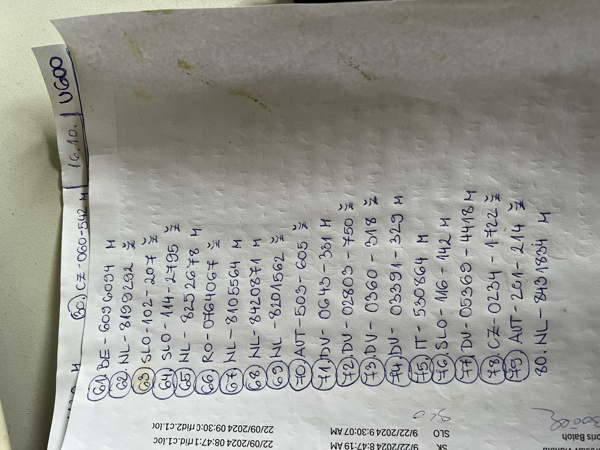 80. CZ-060-542 M | 16.10. | UGOO
61. BE-6096094 M
62. NL-8199292 Ž
63. SLO-102-207 Ž
64. SLO-114-2795 Ž
65. NL-8252678 M
66. RO-0764067 Ž
67. NL-8105564 M
68. NL-8420871 M
69. NL-8201562 Ž
70. AUT-503-605 Ž
71. DV-0643-381 M
72. DV-02803-750 Ž
73. DV-0360-318 Ž
74. DV-03391-329 M
75. IT-530864 M
76. SLO-116-142 M
77. DV-05369-4418 M
78. CZ-0234-1722 Ž
79. AUT-201-214 Ž
80. NL-8431894 M
SLO 9/22/2024 9:30:07 AM 22/09/2024 09:30:0 rfid2.c1.lor
SK 9/22/2024 8:47:19 AM 22/09/2024 08:47:1 rfid.c1.loc